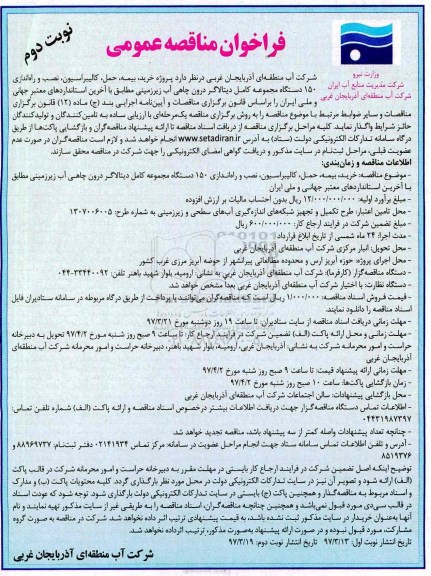 نوبت دوم
فراخوان مناقصه عمومی
وزارت نیرو
شرکت مدیریت منابع آب ایران
شرکت آب منطقه‌ای آذربایجان غربی
شرکت آب منطقه‌ای آذربایجان غربی درنظر دارد پروژه خرید، بیمه، حمل، کالیبراسیون، نصب و راه‌اندازی
۱۵۰ دستگاه مجموعه کامل دیتالاگر درون چاهی آب زیرزمینی مطابق با آخرین استانداردهای معتبر جهانی
و ملی ایران را براساس قانون برگزاری مناقصات و آیین‌نامه اجرایی بند (ج) ماده (۱۲) قانون برگزاری
مناقصات و سایر ضوابط مرتبط با موضوع مناقصه را به روش برگزاری مناقصه یک‌مرحله‌ای با ارزیابی ساده به تامین‌کنندگان و تولیدکنندگان
حائز شرایط واگذار نماید. کلیه مراحل برگزاری مناقصه از دریافت اسناد مناقصه تا ارائه پیشنهاد مناقصه‌گران و بازگشایی پاکت‌ها از طریق
درگاه سامانه تدارکات الکترونیکی دولت (ستاد) به آدرس www.setadiran.ir انجام خواهد شد و لازم است مناقصه‌گران در صورت عدم
عضویت قبلی، مراحل ثبت‌نام در سایت مذکور و دریافت گواهی امضای الکترونیکی را جهت شرکت در مناقصه محقق سازند.
اطلاعات مناقصه و زمان‌بندی:
- موضوع مناقصه: خرید، بیمه، حمل، کالیبراسیون، نصب و راه‌اندازی ۱۵۰ دستگاه مجموعه کامل دیتالاگر درون چاهی آب زیرزمینی مطابق
با آخرین استانداردهای معتبر جهانی و ملی ایران
- مبلغ برآورد اولیه: ۱۲/۰۰۰/۰۰۰/۰۰۰ ریال بدون احتساب مالیات بر ارزش افزوده
- محل تامین اعتبار: طرح تکمیل و تجهیز شبکه‌های اندازه‌گیری آب‌های سطحی و زیرزمینی به شماره طرح: ۱۳۰۷۰۰۶۰۰۵
- مبلغ تضمین شرکت در فرایند ارجاع کار: ۶۰۰/۰۰۰/۰۰۰ ریال
- مدت اجرا: ۲۴ ماه شمسی از تاریخ ابلاغ قرارداد
- محل تحویل: انبار مرکزی شرکت آب منطقه‌ای آذربایجان غربی
- محل اجرای پروژه: حوزه آبریز ارس و محدوده مطالعاتی پیرانشهر از حوضه آبریز مرزی غرب کشور
- دستگاه مناقصه‌گزار (کارفرما): شرکت آب منطقه‌ای آذربایجان غربی به نشانی: ارومیه، بلوار شهید باهنر تلفن: ۳۳۴۴۰۰۹۲-۰۴۴
- دستگاه نظارت: با اختیار شرکت آب منطقه‌ای آذربایجان غربی بعدا مشخص خواهد شد.
- قیمت فروش اسناد مناقصه: ۱/۰۰۰/۰۰۰ ریال است که مناقصه‌گران می‌توانند با پرداخت از طریق درگاه مربوطه در سامانه ستادیران فایل
اسناد مناقصه را دانلود نمایند.
- مهلت زمانی دریافت اسناد مناقصه از سایت ستادیران: تا ساعت ۱۹ روز دوشنبه مورخ ۹۷/۳/۲۱
- مهلت زمانی و محل ارائه پاکت (الف) تضمین شرکت در فرایند ارجاع کار: تا ساعت ۹ صبح روز شنبه مورخ ۹۷/۴/۲ تحویل به دبیرخانه
حراست و امور محرمانه شرکت به نشانی: آذربایجان غربی، ارومیه، بلوار شهید باهنر، دبیرخانه حراست و امور محرمانه شرکت آب منطقه‌ای
آذربایجان غربی
- مهلت زمانی ارائه پیشنهاد قیمت: تا ساعت ۹ صبح روز شنبه مورخ ۹۷/۴/۲
- زمان بازگشایی پاکت‌ها: ساعت ۱۰ صبح روز شنبه مورخ ۹۷/۴/۲
- محل بازگشایی پیشنهادات: سالن اجتماعات شرکت آب منطقه‌ای آذربایجان غربی
- اطلاعات تماس دستگاه مناقصه‌گزار جهت دریافت اطلاعات بیشتر درخصوص اسناد مناقصه و ارائه پاکت (الف) شماره تلفن تماس:
۰۴۴۳۱۹۸۷۳۹۷
- چنانچه تعداد پیشنهادات واصله کمتر از سه پیشنهاد باشد، مناقصه تجدید خواهد شد.
- آدرس و تلفن اطلاعات تماس سامانه ستاد جهت انجام مراحل عضویت در سامانه: مرکز تماس ۰۲۱۴۱۹۳۴ دفتر ثبت‌نام: ۸۸۹۶۹۷۳۷ و
۸۵۱۹۳۷۶
توضیح اینکه اصل تضمین شرکت در فرایند ارجاع کار بایستی در مهلت مقرر به دبیرخانه حراست و امور محرمانه شرکت در قالب پاکت
(الف) ارائه شود و تصویر آن نیز در سایت تدارکات الکترونیکی دولت در محل مورد نظر بارگذاری گردد. کلیه محتویات پاکت (ب) و مدارک
و اسناد مربوط به مناقصه‌گذار و همچنین پاکت (ج) بایستی در سایت تدارکات الکترونیکی دولت بارگذاری شود. توجه شود که عودت اسناد
در قالب سی‌دی مورد قبول نمی‌باشد و همچنین چنانچه مناقصه‌گران، اسناد مناقصه را به طریقی غیر از سایت مذکور تهیه نمایند و نام
آنها به‌عنوان خریدار در سایت مذکور ثبت نشده باشد، به قیمت پیشنهادی ترتیب اثر داده نخواهد شد. شرکت در مناقصه به صورت گروه
مشارکت، مورد قبول نبوده و در صورت ارائه پیشنهاد به‌صورت مذکور، ترتیب اثر داده نخواهد شد.
تاریخ انتشار نوبت اول: ۹۷/۳/۱۳ تاریخ انتشار نوبت دوم: ۹۷/۳/۱۹
شرکت آب منطقه‌ای آذربایجان غربی